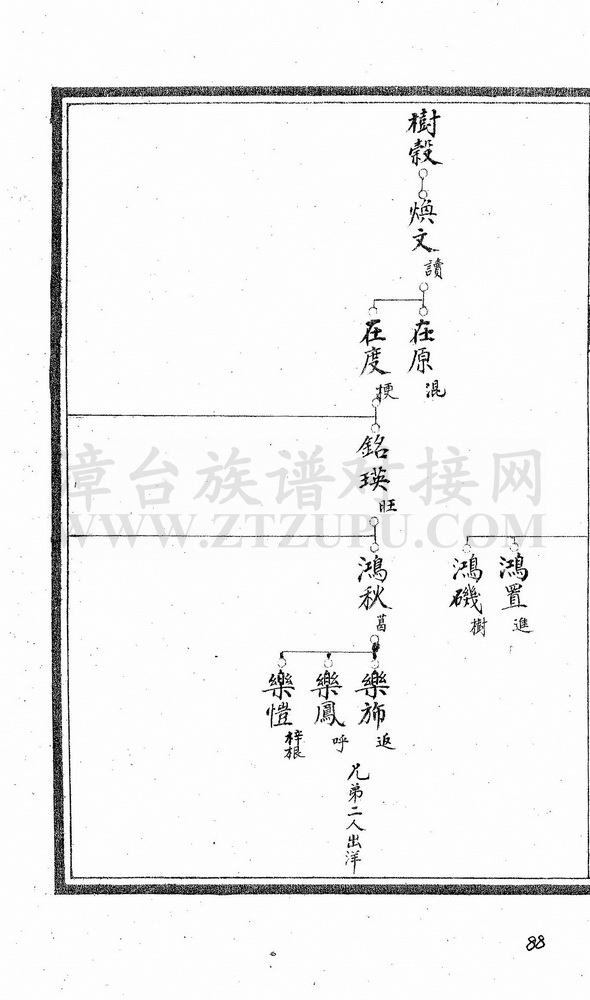 樹榖
煥文 讀
在原 混
在度 梗
銘瑛 旺
鴻置 進
鴻磯 樹
鴻秋 葛
樂斾 返
樂鳳 呼
樂愷 梓根
兄弟二人出洋
漳台族谱对接网
WWW.ZTZUPU.COM
88